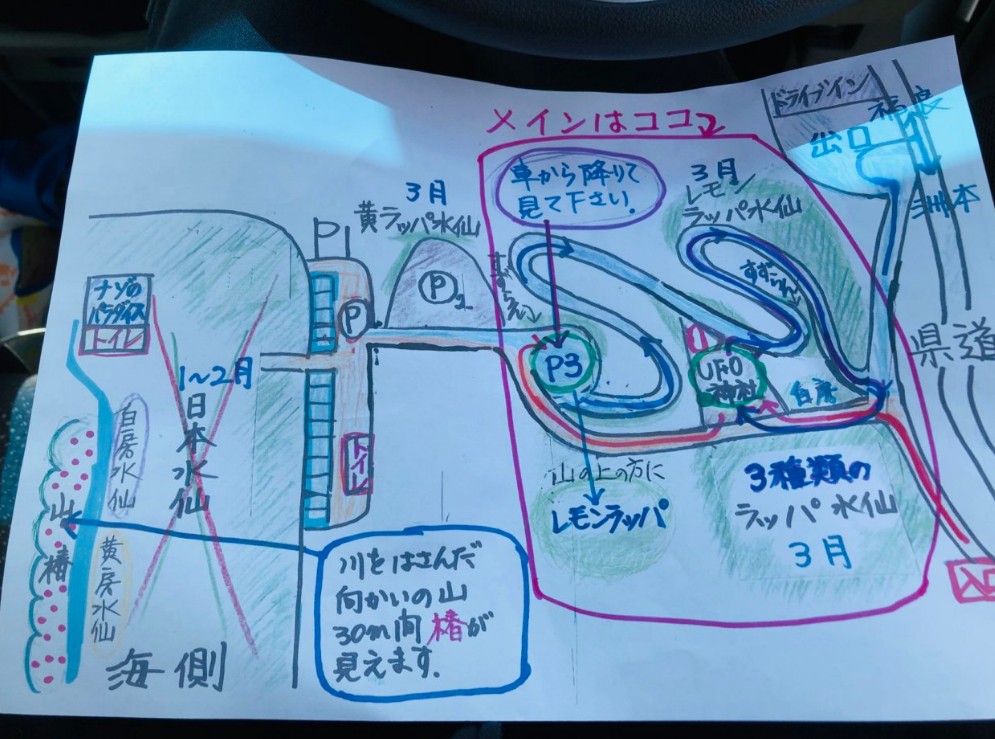 メインはココ
車から降りて
見て下さい.
3月
レモン
ラッパ水仙
ドライブイン
出口
福良
洲本
県道
入口
3月
黄ラッパ水仙
P
P
P2
P3
すいせん
UFO
神社
白房
3種類の
ラッパ水仙
3月
山の上の方に
レモンラッパ
ナゾの
パラダイス
トイレ
1〜2月
日本水仙
白房水仙
黄房水仙
山
椿
海側
トイレ
川をはさんだ
向かいの山
30m間椿が
見えます.